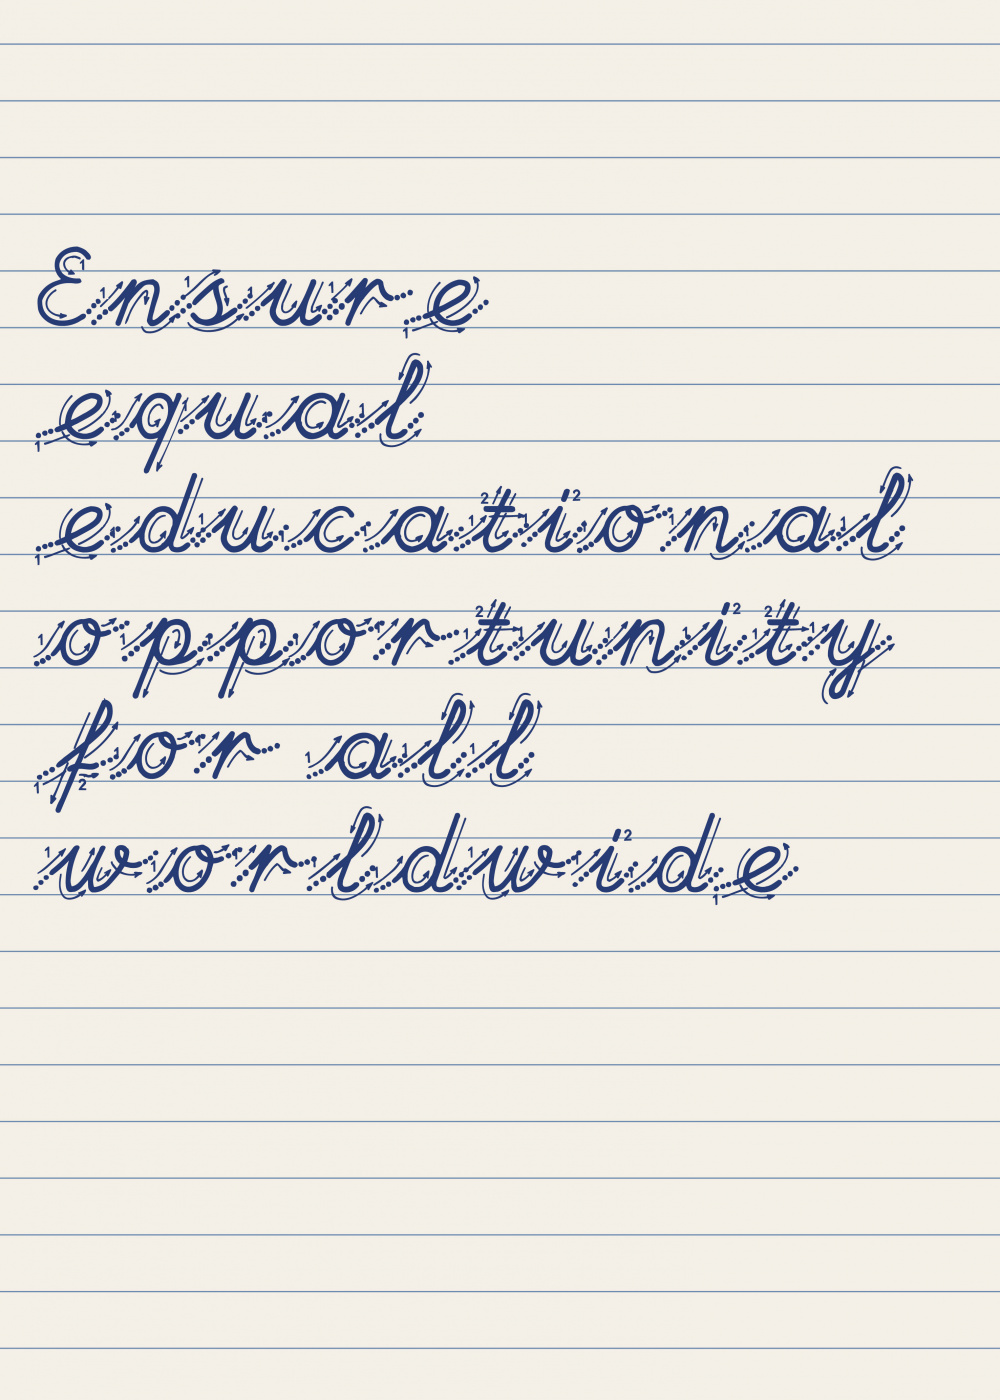 Ensure
equal
educational
opportunity
for all
worldwide